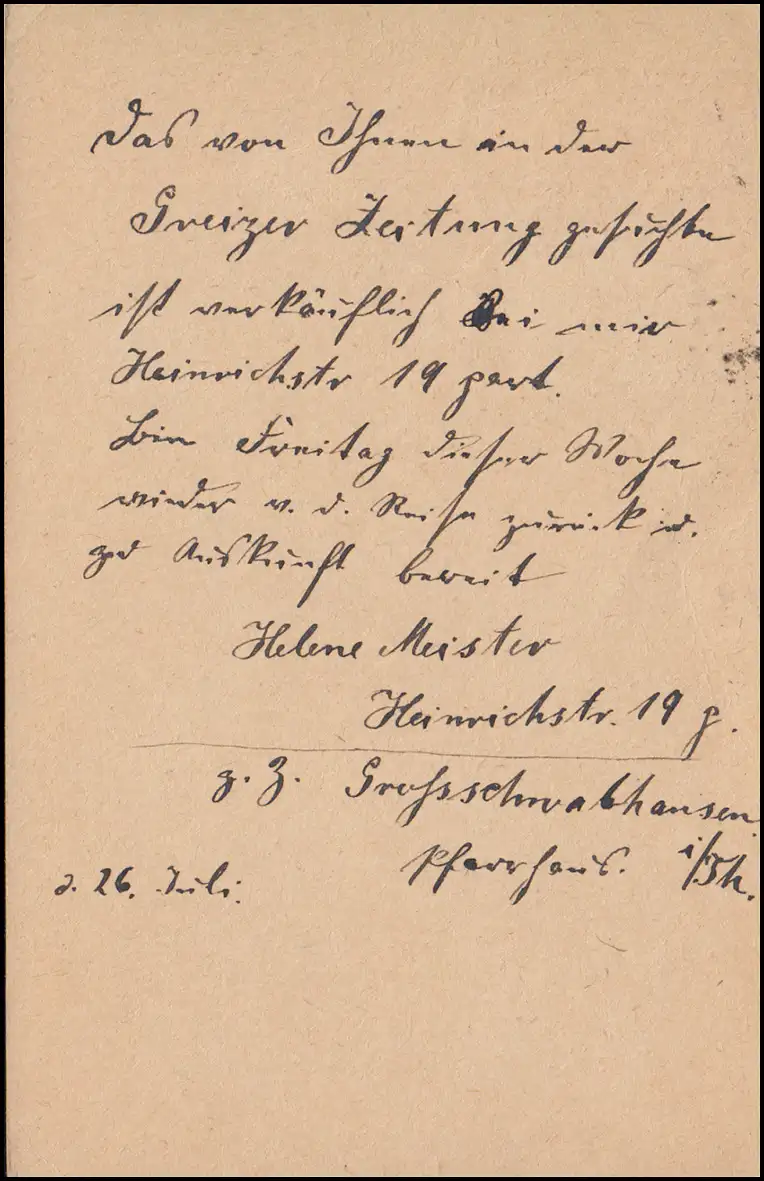 Das von Ihnen in der
Greizer Zeitung gesuchte
ist verkäuflich bei mir
Heinrichstr 19 part.
Bin Freitag dieser Woche
wieder v. d. Reise zurück u.
Auskunft bereit
Helene Meister
Heinrichstr. 19 p.
z. Z. Grossschwabhausen
Pfarrhaus. i/Th.
d. 26. Juli.